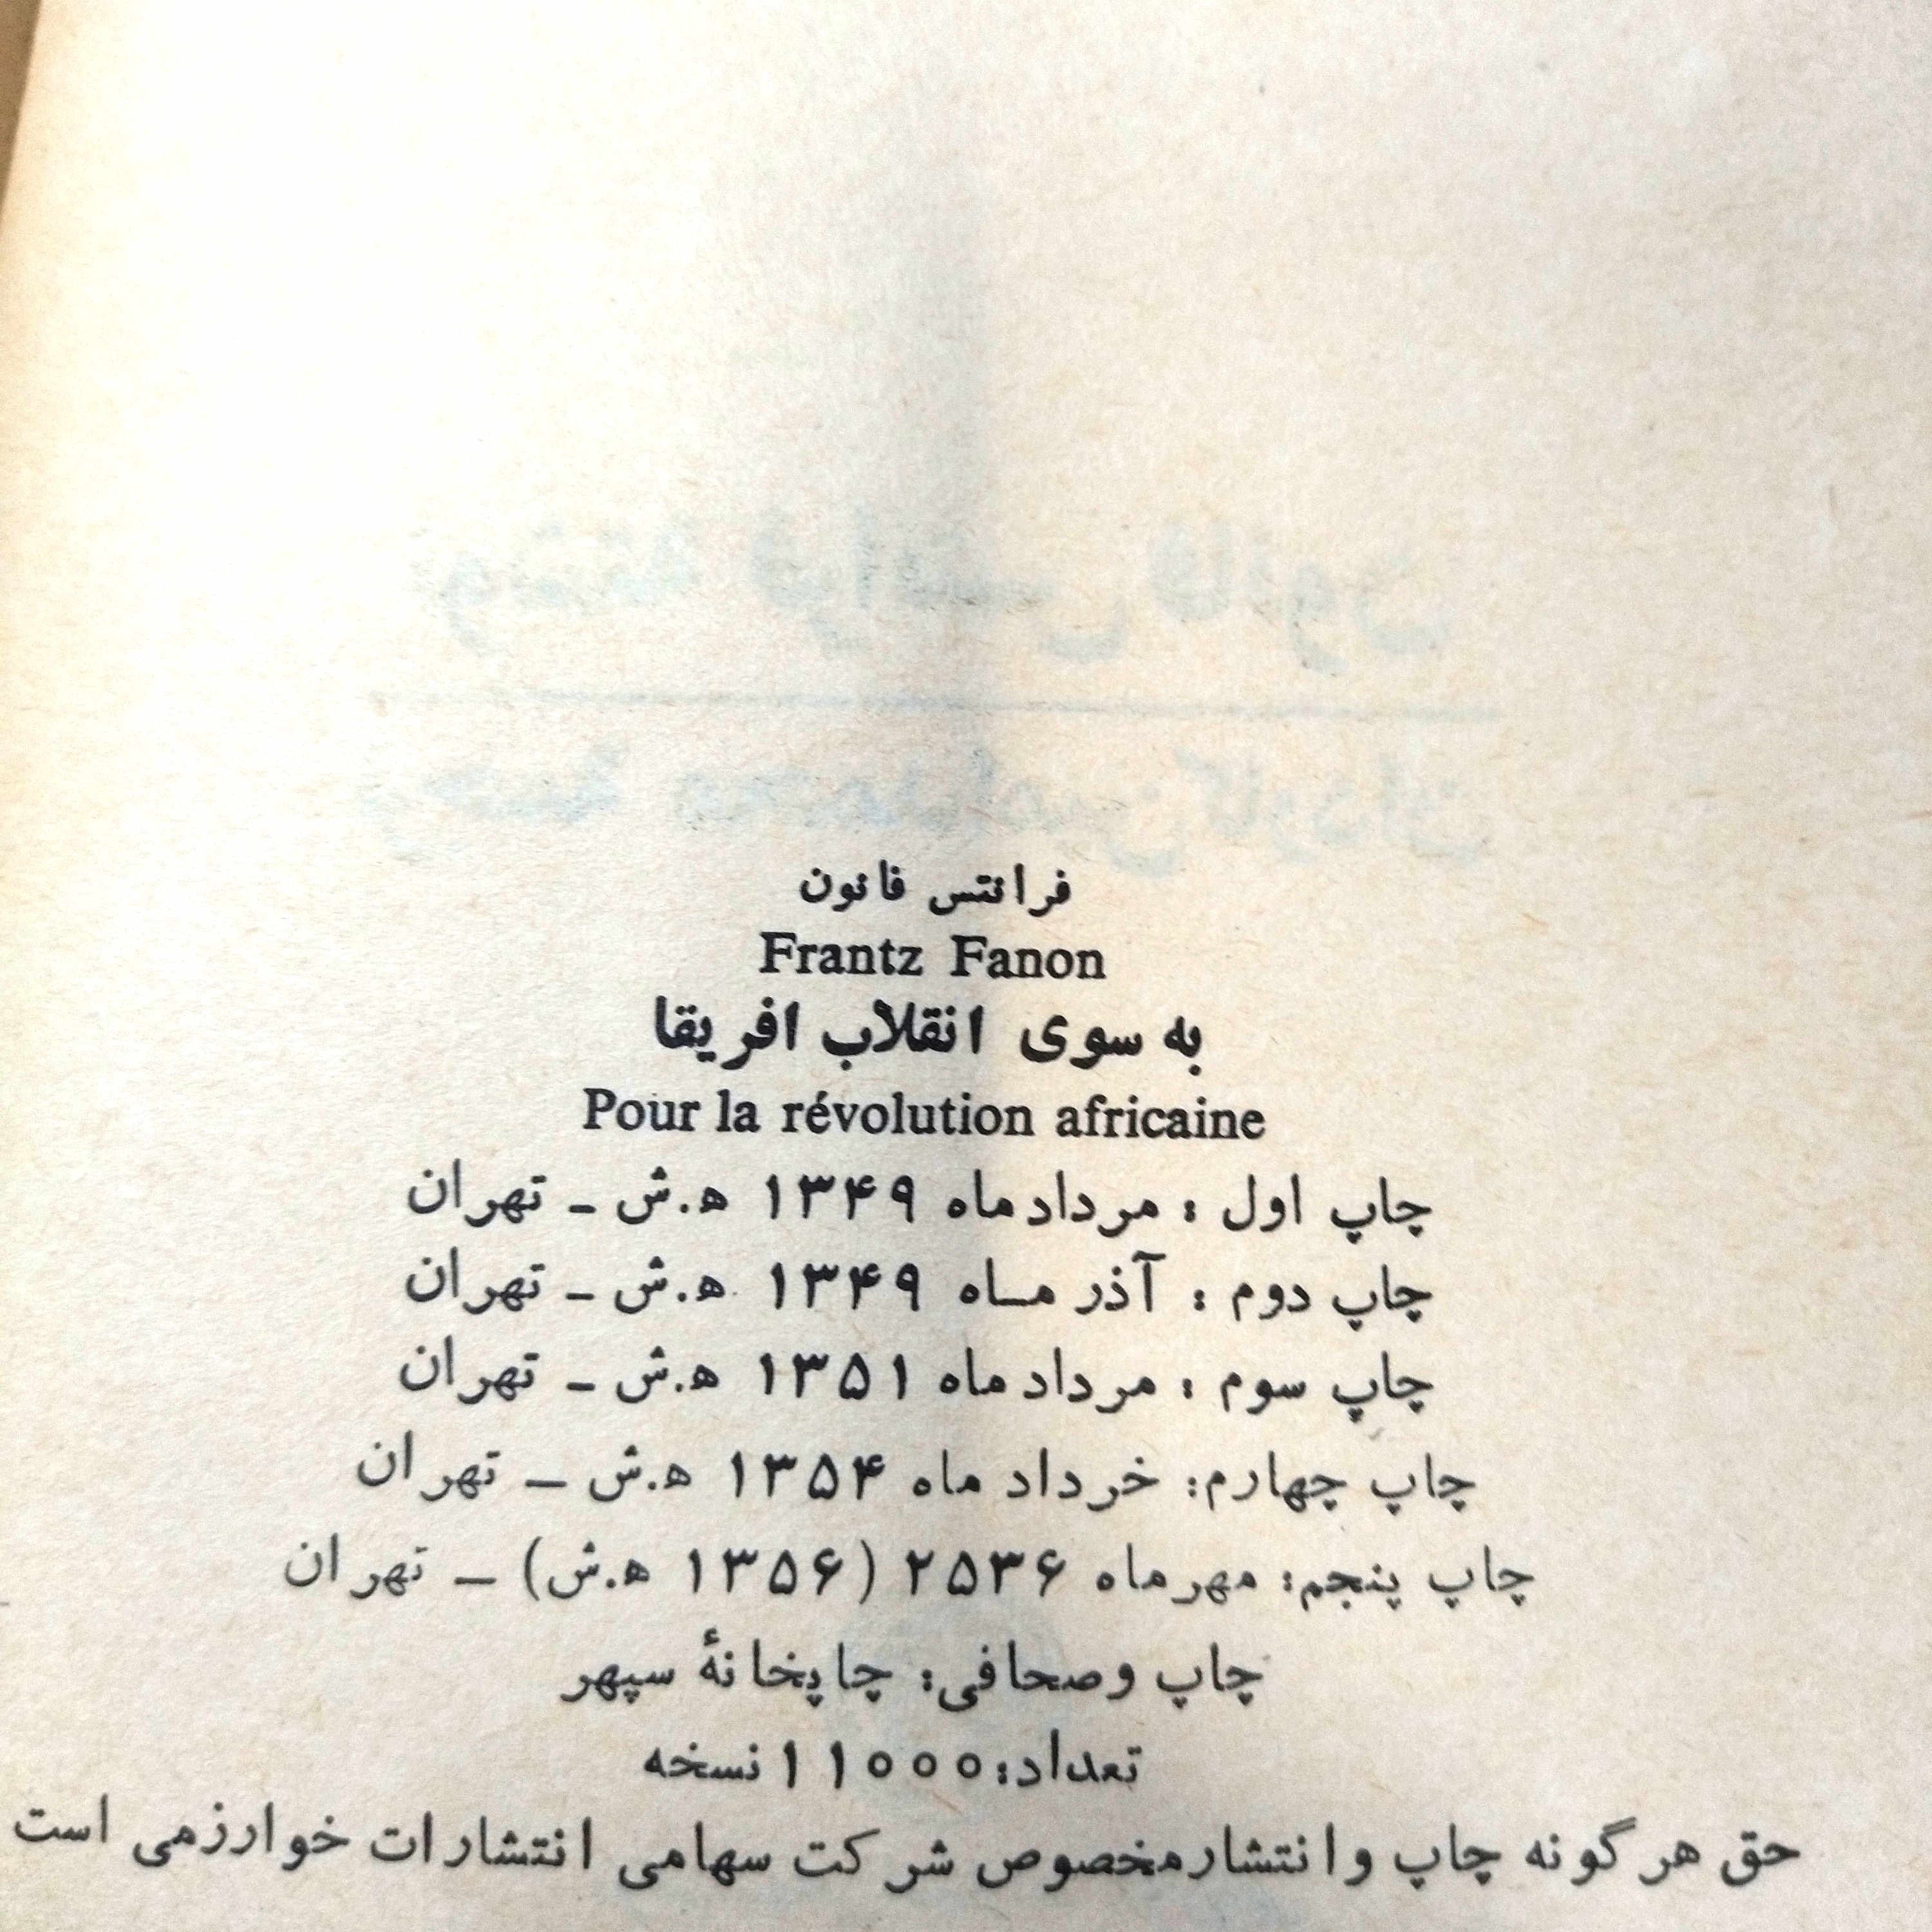 فرانتس فانون
Frantz Fanon
به سوی انقلاب افریقا
Pour la révolution africaine
چاپ اول : مردادماه ۱۳۴۹ ه.ش - تهران
چاپ دوم : آذر مـاه ۱۳۴۹ ه.ش - تهران
چاپ سوم : مردادماه ۱۳۵۱ ه.ش - تهران
چاپ چهارم: خرداد ماه ۱۳۵۴ ه.ش - تهران
چاپ پنجم: مهرماه ۲۵۳۶ (۱۳۵۶ ه.ش) - تهران
چاپ وصحافی: چاپخانهٔ سپهر
تعداد: ۱۱۰۰۰ نسخه
حق هرگونه چاپ وانتشارمخصوص شرکت سهامی انتشارات خوارزمی است